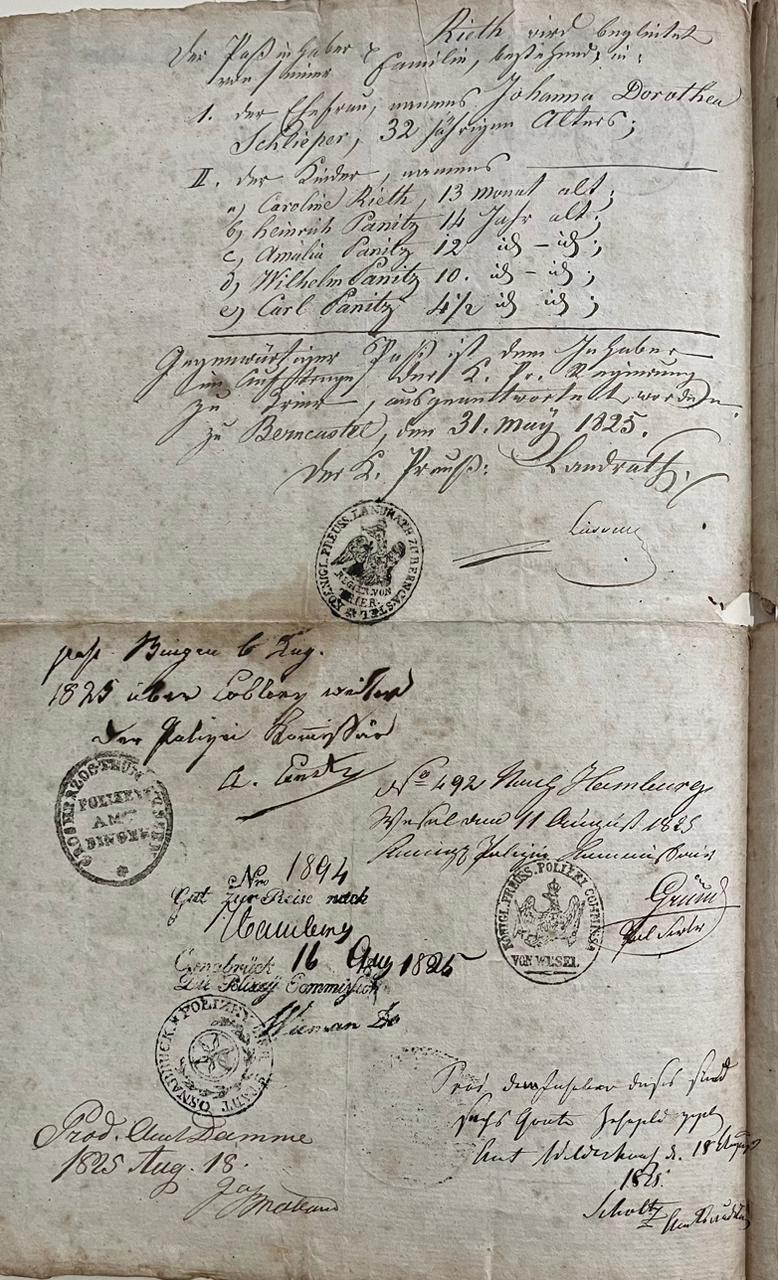 Der Paß inhaber Rieth wird begleitet
von seiner Familie, bestehend, in:
1. der Ehefrau, namens Johanna Dorothea
Schlieper, 32 jährigen Alters;
II. der Kinder, namens
a) Caroline Rieth, 13 monat alt;
b) Heinrich Panitz 14 Jahr alt;
c) Amalia Panitz 12 id – id;
d) Wilhelm Panitz 10. id – id;
e) Carl Panitz 4 1/2 id id;
Gegenwärtiger Paß ist dem Inhaber
im Auftrage der K. Pr. Regierung
zu Trier, ausgeantwortet worden.
zu Berncastel, den 31. May 1825.
Der K. Preuß: Landrath,
KOENIGL. PREUSS. LANDRATH ZU BERNCASTEL
REGIER. VON
TRIER
pass. Bingen 6 Aug.
1825 über Coblenz weiter
Der Polizei Kommissär
GROSHERZOGTHUM HESSEN
POLIZEY
AMT
BINGEN
No 492 Nach Hamburg
Wesel den 11 August 1825
Polizei Commissair
Grün
KÖNIGL. PREUSS. POLIZEY COMMISSA
VON WESEL
Nro 1894
Gut zur Reise nach
Hamburg
Osnabrück 16 Aug 1825
Die Polizey Commission
OSNABRÜCK POLIZEY DER STADT
Prod. Amt Damme
1825 Aug. 18.
dem Inhaber dieses sind
sechs Grote
Amt d. 18 August
1825
Scholtz